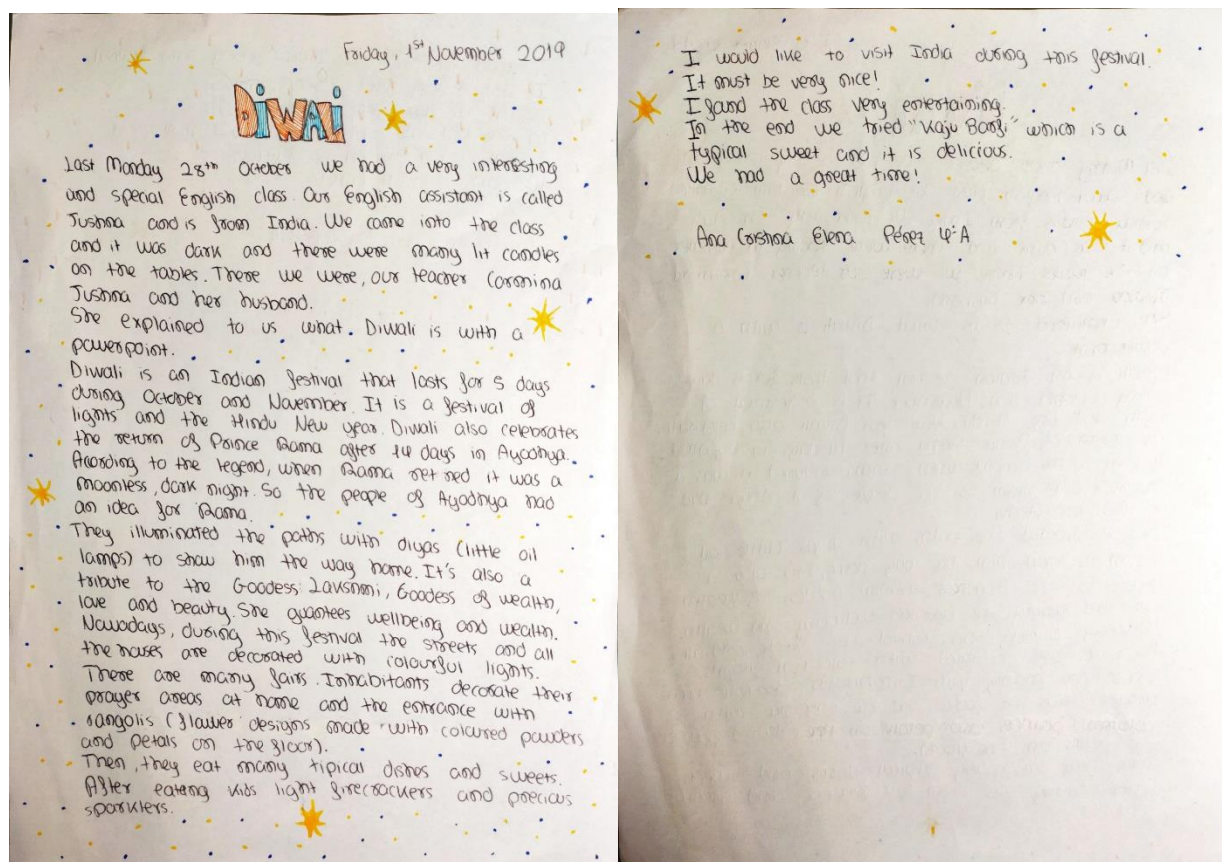 Friday, 1st November 2019
DIWALI
Last Monday 28th October we had a very interesting
and special English class. Our English assistant is called
Jushna and is from India. We came into the class
and it was dark and there were many lit candles
on the tables. There we were, our teacher Coromina
Jushna and her husband.
She explained to us what. Diwali is with a
powerpoint.
Diwali is an Indian festival that lasts for 5 days
during October and November. It is a festival of
lights and the Hindu New year. Diwali also celebrates
the return of Prince Rama after 14 days in Ayodhya.
Acording to the legend, when Rama retned it was a
moonless, dark night. So the people of Ayodhya had
an idea for Rama.
They illuminated the paths with diyas (little oil
lamps) to show him the way home. It's also a
tribute to the Goodess: Lakshmi, Goodess of wealth,
love and beauty. She guantees wellbeing and wealth.
Nowadays, during this festival the streets and all
the houses are decorated with colourful lights.
There are many fairs. Inhabitants decorate their
prayer areas at home and the entrance with
rangolis (flower designs made with coloured powders
and petals on the floor).
Then, they eat many tipical dishes and sweets.
After eateng kids light firecrackers and precious
sparklers.
I would like to visit India during this festival.
It must be very nice!
I found the class very entertaining.
In the end we tried "Kaju Barfi" which is a
typical sweet and it is delicious.
We had a great time!
Ana Cristina Elena Pérez 4ºA